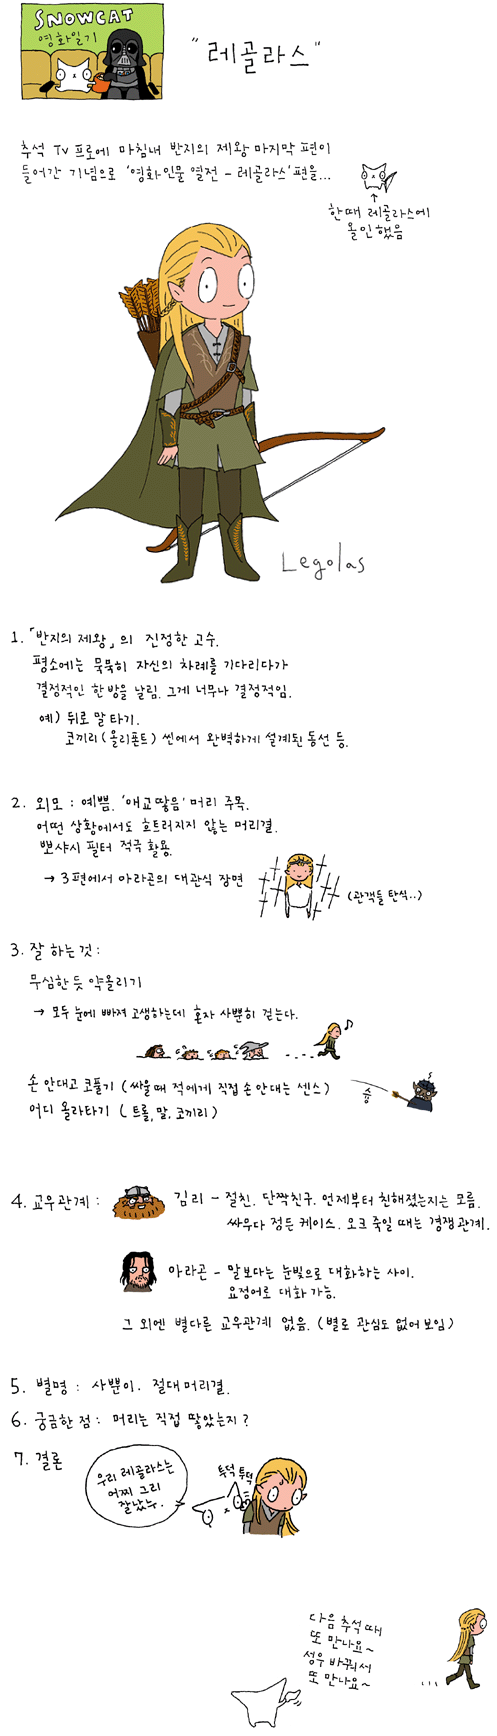 SNOWCAT
영화일기
"레골라스"
추석 TV 프로에 마침내 반지의 제왕 마지막 편이
들어간 기념으로 '영화인물 열전 - 레골라스' 편을...
↑
한때 레골라스에
올인했음
Legolas
1. 「반지의 제왕」의 진정한 고수.
평소에는 묵묵히 자신의 차례를 기다리다가
결정적인 한방을 날림. 그게 너무나 결정적임.
예) 뒤로 말 타기.
코끼리(올리폰트) 씬에서 완벽하게 설계된 동선 등.
2. 외모 : 예쁨. '애교땋음' 머리 주목.
어떤 상황에서도 흐트러지지 않는 머리결.
뽀샤시 필터 적극 활용.
→ 3편에서 아라곤의 대관식 장면
(관객들 탄식..)
3. 잘 하는 것 :
무심한 듯 약올리기
→ 모두 눈에 빠져 고생하는데 혼자 사뿐히 걷는다.
손 안대고 코풀기 (싸울때 적에게 직접 손 안대는 센스)
슝
어디 올라타기 (트롤, 말, 코끼리)
4. 교우관계 :
김리 - 절친. 단짝친구. 언제부터 친해졌는지는 모름.
싸우다 정든 케이스. 오크 죽일 때는 경쟁관계.
아라곤 - 말보다는 눈빛으로 대화하는 사이.
요정어로 대화 가능.
그 외엔 별다른 교우관계 없음. (별로 관심도 없어 보임)
5. 별명 : 사뿐이. 절대 머리결.
6. 궁금한 점 : 머리는 직접 땋았는지?
7. 결론
우리 레골라스는
어찌 그리
잘났누.
툭덕 툭덕
다음 추석 때
또 만나요~
성우 바꿔서
또 만나요~